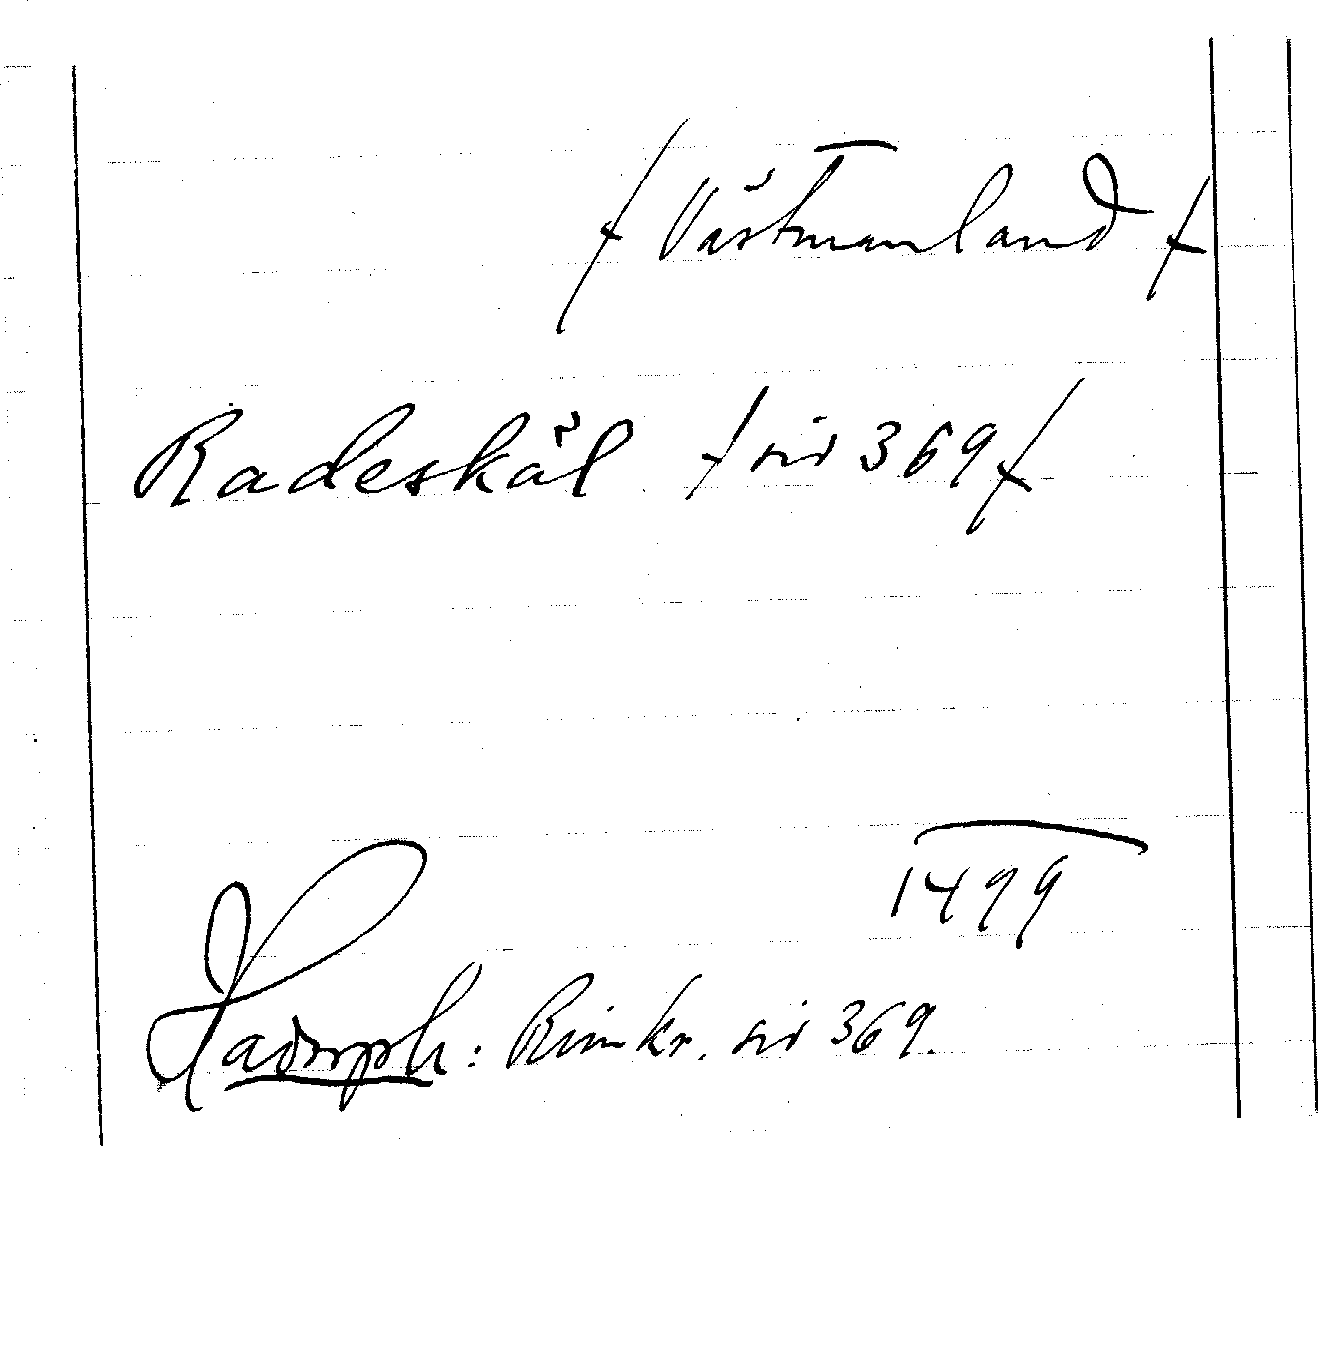 / Västmanland /
Radeskäl / sid 369 /
1499
Hadorph: Rimkr. sid 369.